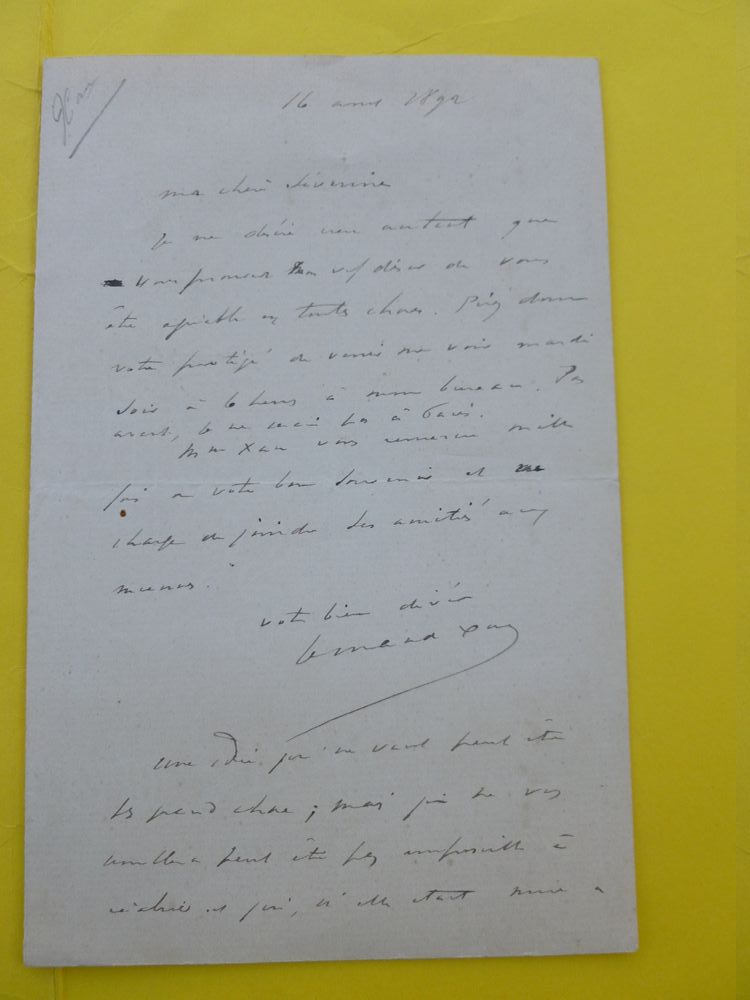 Xau
16 avril 1892
ma chère Séverine
Je ne désire rien autant que
vous prouver mon vif désir de vous
être agréable en toutes choses. Priez donc
votre protégé de venir me voir mardi
soir à 6 heures à mon bureau. Pas
avant, je ne serai pas à Paris.
Mme Xau vous remercie mille
fois de votre bon souvenir et me
charge de joindre ses amitiés aux
miennes.
votre bien dévoué
Fernand Xau
une idée qui ne vaut peut être
pas grand chose ; mais qui ne vous
semblera peut être pas impossible à
réaliser et qui, si elle était mise à